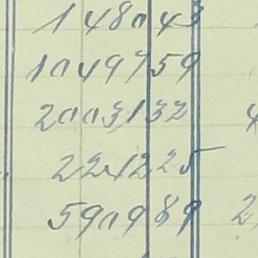 148043
1049759
2003132
221225
590989